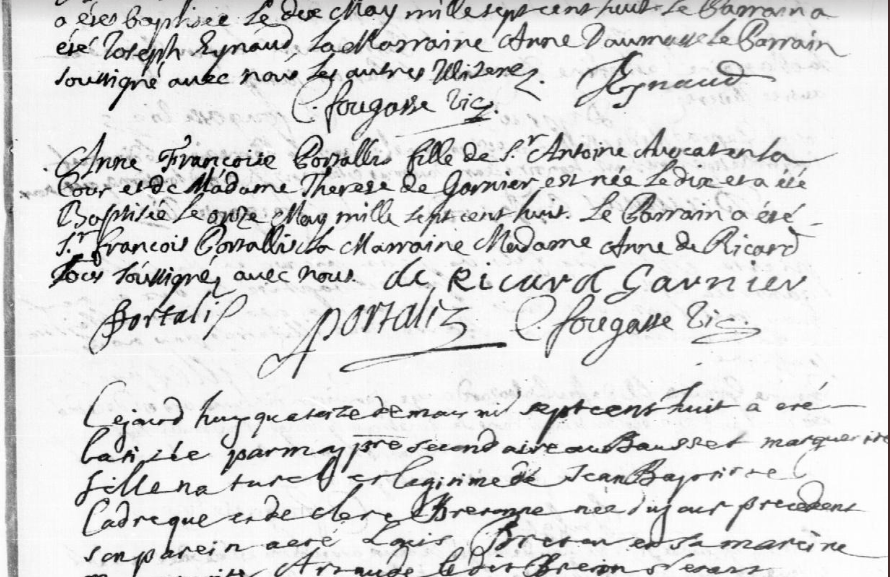 a étée baptisée le dix May mille sept cent huit le Parrain a
été Joseph Eynaud, la Marraine Anne Daumasse le Parrain
soussigné avec nous les autres illiterez. JEynaud
C. fougasse Vic.
Anne Francoise Portallis fille de S.r Antoine Avocat en la
Cour et de Madame Therese de Garnier est née le dix et a été
Baptisée le onze May mille sept cent huit. Le Parrain a été
S.r francois Portallis la Marraine Madame Anne de Ricard
Tous soussignéz avec nous de Ricard Garnier
Portalis Portalis C. fougasse Vic.
Cejourd huy quatorze de may mil sept cent huit a eté
batisée par moy pre secondaire au Bausset marguerite
fille naturele et legitime de Jean Baptiste
et de Bremonne née du jour precedent
son parein a eté Louis Bremon et sa mareine
le dit Bremon